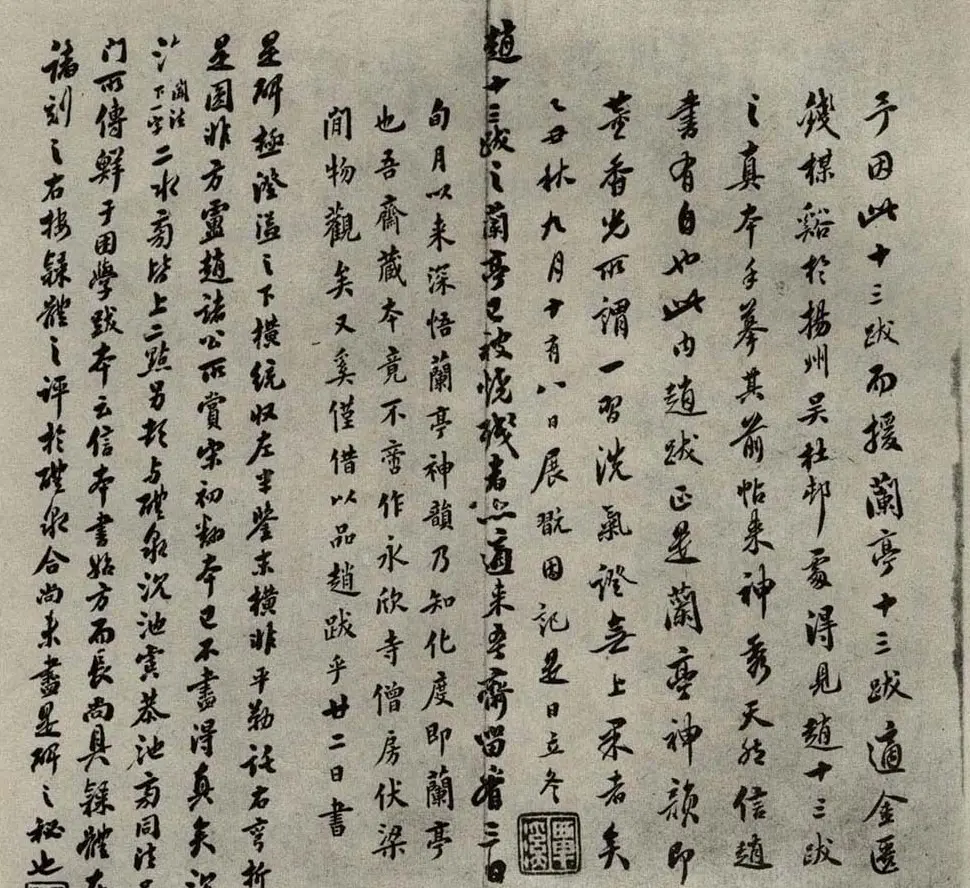 予因此十三跋而援蘭亭十三跋適金匱
錢楳谿於揚州吳杜邨處得見趙十三跋
之真本手摹其前帖来神秀天然信趙
書有自也此内趙跋正是蘭亭神韻即
董香光所謂一習洗氣證無上果者矣
乙丑秋九月十有八日展翫因記是日立冬
趙十三跋之蘭亭已被燒殘者亦適来吾齋留三日
旬月以来深悟蘭亭神韻乃知化度即蘭亭
也吾齋藏本竟不啻作永欣寺僧房伏梁
間物觀矣又奚僅借以品趙跋乎廿二日書
是碑極澄溢之下橫統收左半鑒末橫非平勒託右亨折
是圆非方靈趙諸公所賞宋初翻本已不盡得真矣沉
下一字二水旁皆上二點另起与醴泉沉池寔恭池旁同法
門所傳鮮于困學跋本云信本書始方而長尚具隸體在
諸刻之右按隸體之評於醴泉合尚未盡是碑之秘也